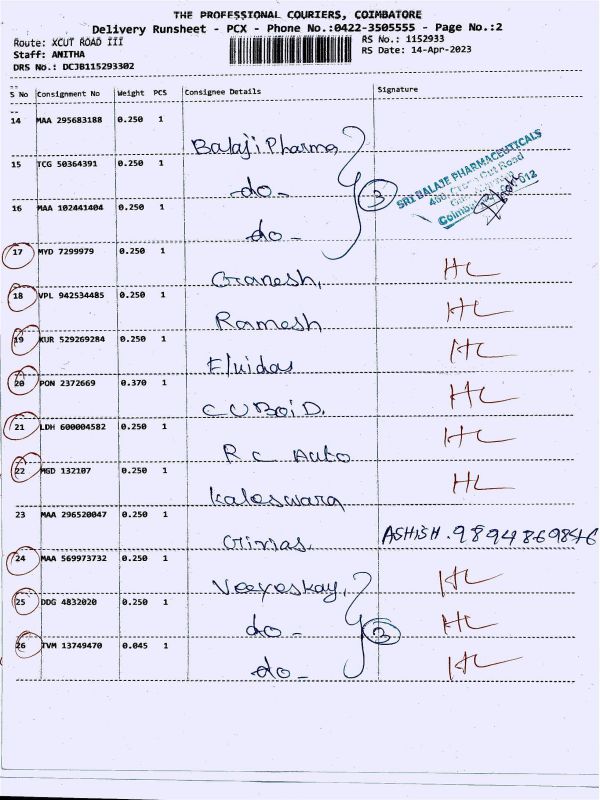 THE PROFESSIONAL COURIERS, COIMBATORE
Delivery Runsheet - PCX - Phone No.:0422-3505555 - Page No.:2
Route: XCUT ROAD III
RS No.: 1152933
Staff: ANITHA
RS Date: 14-Apr-2023
DRS No.: DCJB115293302
S No Consignment No Weight PCS Consignee Details Signature
14 MAA 295683188 0.250 1
Balaji Pharma
15 TCG 50364391 0.250 1
-do-
3
SRI BALAJE PHARMACEUTICALS
Cross Cut Road
16 MAA 102441404 0.250 1
do-
17 MYD 7299979 0.250 1
Ganesh, HL
18 VPL 942534485 0.250 1
Ramesh HL
19 KUR 529269284 0.250 1
Fluidas HL
20 PON 2372669 0.370 1
CUBoiD. HL
21 LDH 600004582 0.250 1
RC Auto HL
22 MGD 132107 0.250 1
Kaleswara HL
23 MAA 296520047 0.250 1
ASHISH. 9894869846
24 MAA 569973732 0.250 1
Veeyeskay, HL
25 DDG 4832020 0.250 1
do- 3 HL
26 TVM 13749470 0.045 1
do- HL